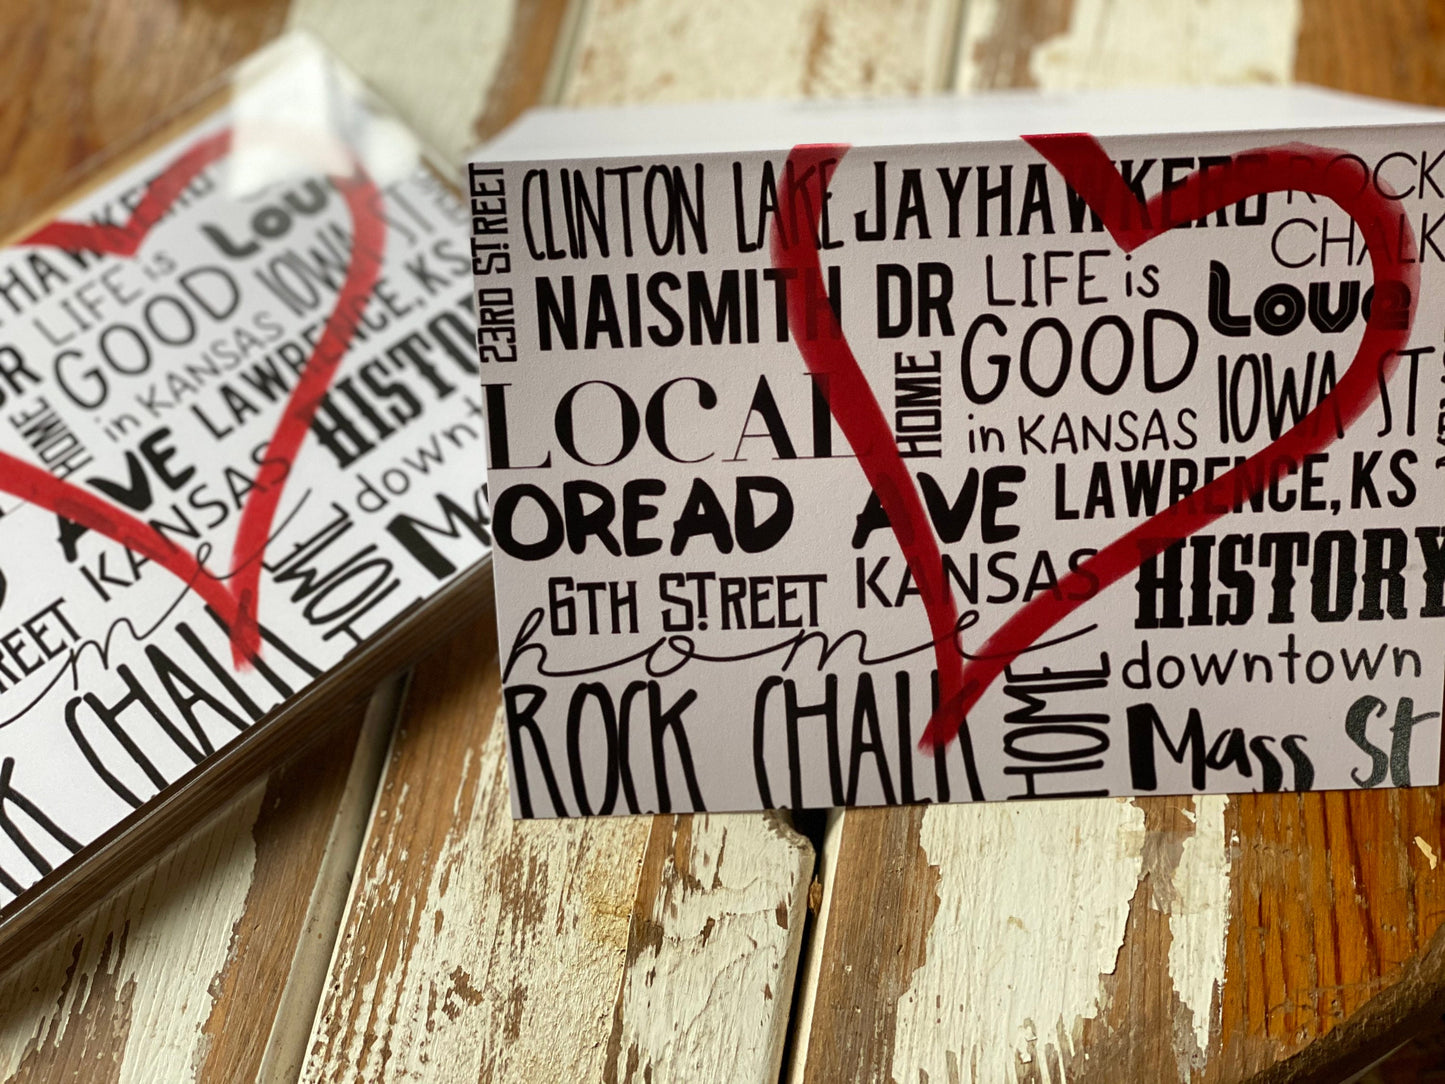 23RD STREET
CLINTON LAKE JAYHAWKERS ROCK
CHALK
NAISMITH DR LIFE is Love
GOOD
HOME
in KANSAS
IOWA ST
LOCAL
OREAD AVE LAWRENCE, KS
6TH STREET KANSAS HISTORY
home
downtown
ROCK CHALK HOME Mass St
LIFE is Love
GOOD IOWA ST
in KANSAS
HOME
LAWRENCE, KS
AVE
KANSAS
downt
home
HOME
CHALK